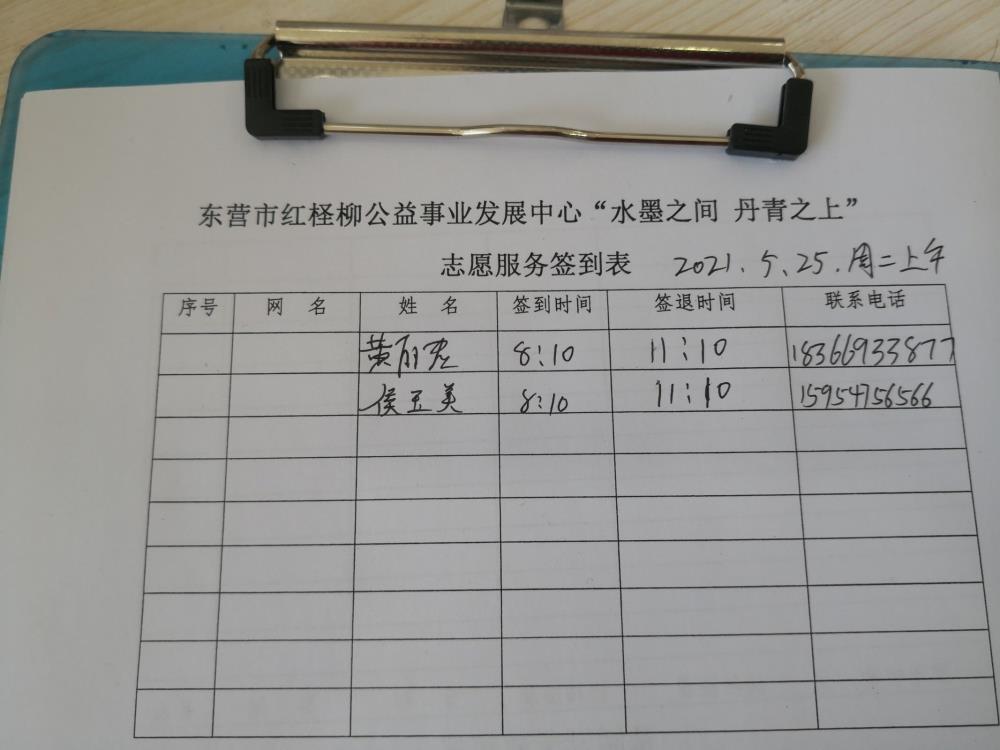 东营市红柽柳公益事业发展中心“水墨之间 丹青之上”
志愿服务签到表 2021.5.25.周二上午
序号 网 名 姓 名 签到时间 签退时间 联系电话
黄丽 8:10 11:10 18366933877
侯玉美 8:10 11:10 15954756566